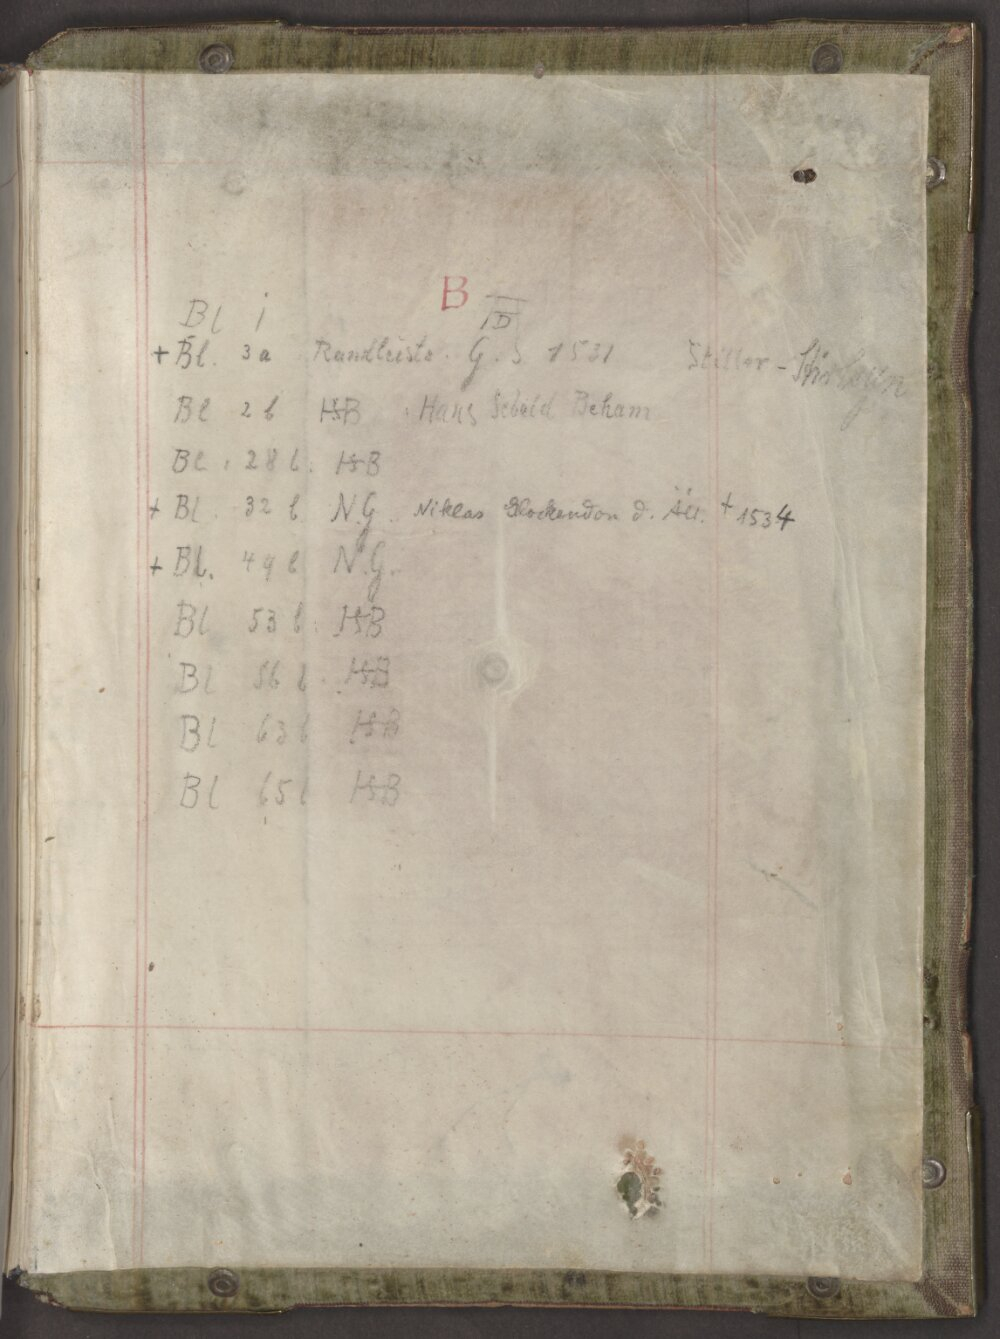 B
Bl 1 ID
+ Bl. 3a Randleiste. G. S. 1531 Stiller -
Bl 2 b HSB Hans Sebald Beham
Bl. 28 b. HSB
+ Bl. 32 b N.G. Niklas Glockendon d. Ält. † 1534
+ Bl. 49 b N.G.
Bl 53 b. HSB
Bl 56 b. HSB
Bl 63 b HSB
Bl 65 b HSB